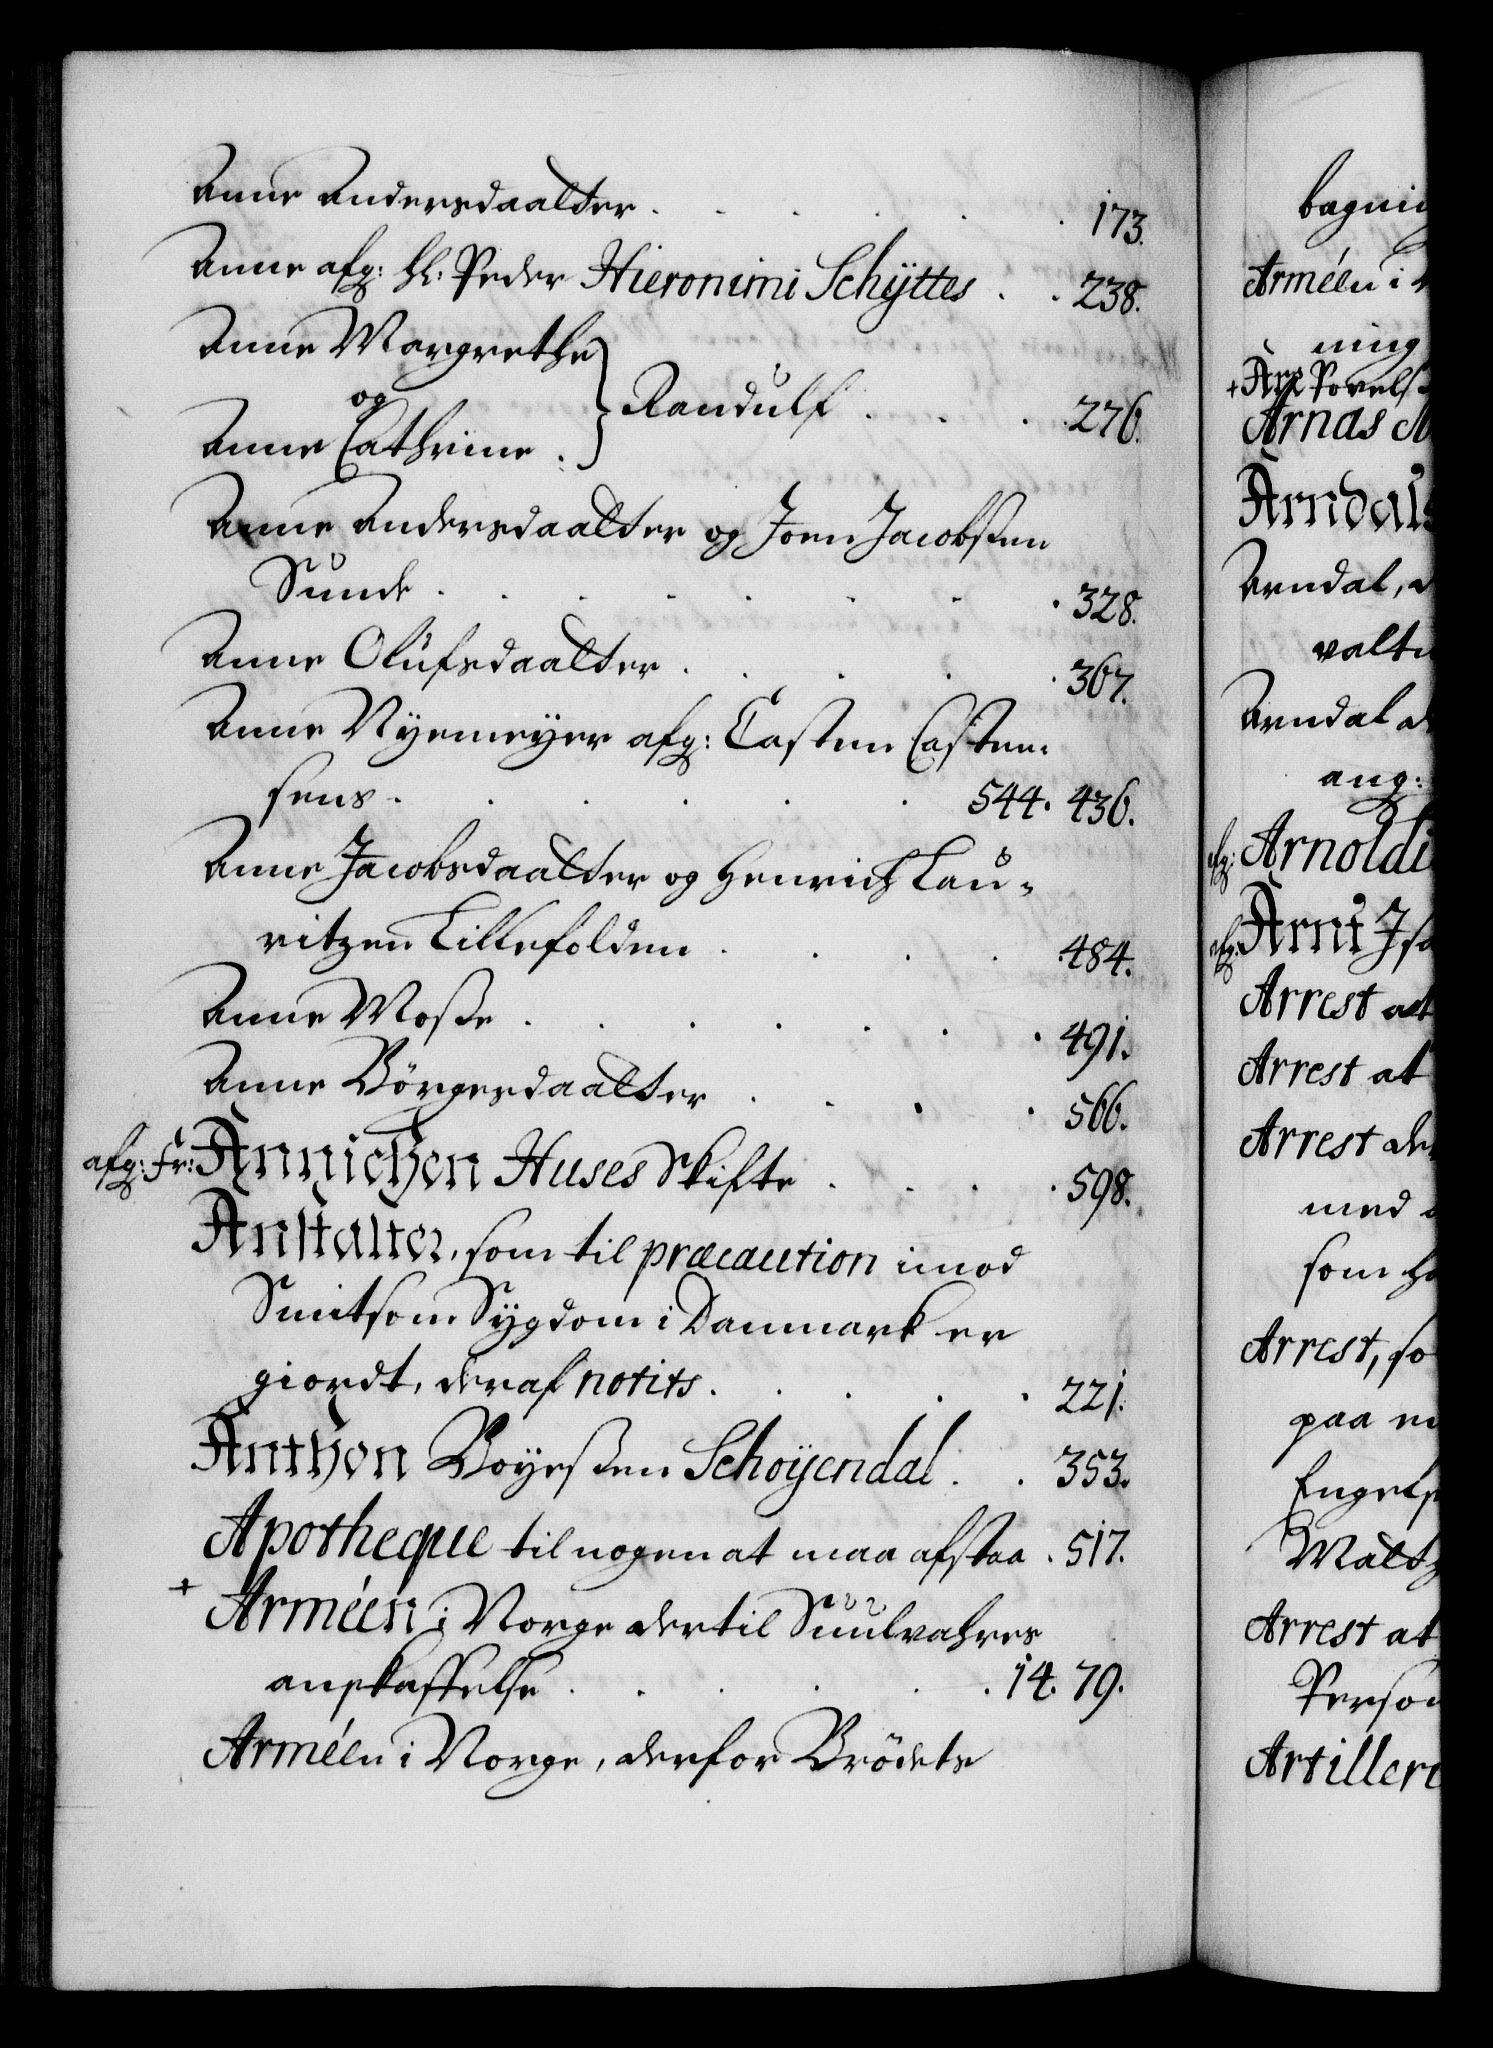 Anne Andersdaatter . . . . . 173.
Anne afg: Hl: Peder Hieronimi Schÿttes . . 238.
Anne Margrethe
og } Randulf . . . . 276.
Anne Cathrine .
Anne Andersdaatter og Joen Jacobsen
Sunde . . . . . . . 328.
Anne Olufsdaatter . . . . . 367.
Anne Nyemeyer afg: Casten Casten-
sens . . . . . . 544. 436.
Anne Jacobsdaatter og Henrich Lau-
ritzen Lillefolden . . . . . 484.
Anne Moss . . . . . . . 491.
Anne Børgesdaatter . . . . 566.
afg: Fr: Annichen Huses Skifte . . . . 598.
Anstalter, som til præcaution imod
Smitsom Sygdom i Danmark er
giordt, deraf notits . . . . . 221.
Anthon Boyesen Schoÿendal . . 353.
Apotheque til nogen at maa afstaa . 517.
+ Arméen i Norge dertil Huulvahres
anskaffelse . . . . . . 14. 79.
Arméen i Norge, derfor Brødets
Arméen i
ning
+ Are Povels
Arnas
Arndals
Arndal,
Arndal
ang:
afg: Arnoldi
afg: Arnt
Arrest at
Arrest at
Arrest
med
som
Arrest, so
paa
Arrest at
Person
Artilleri